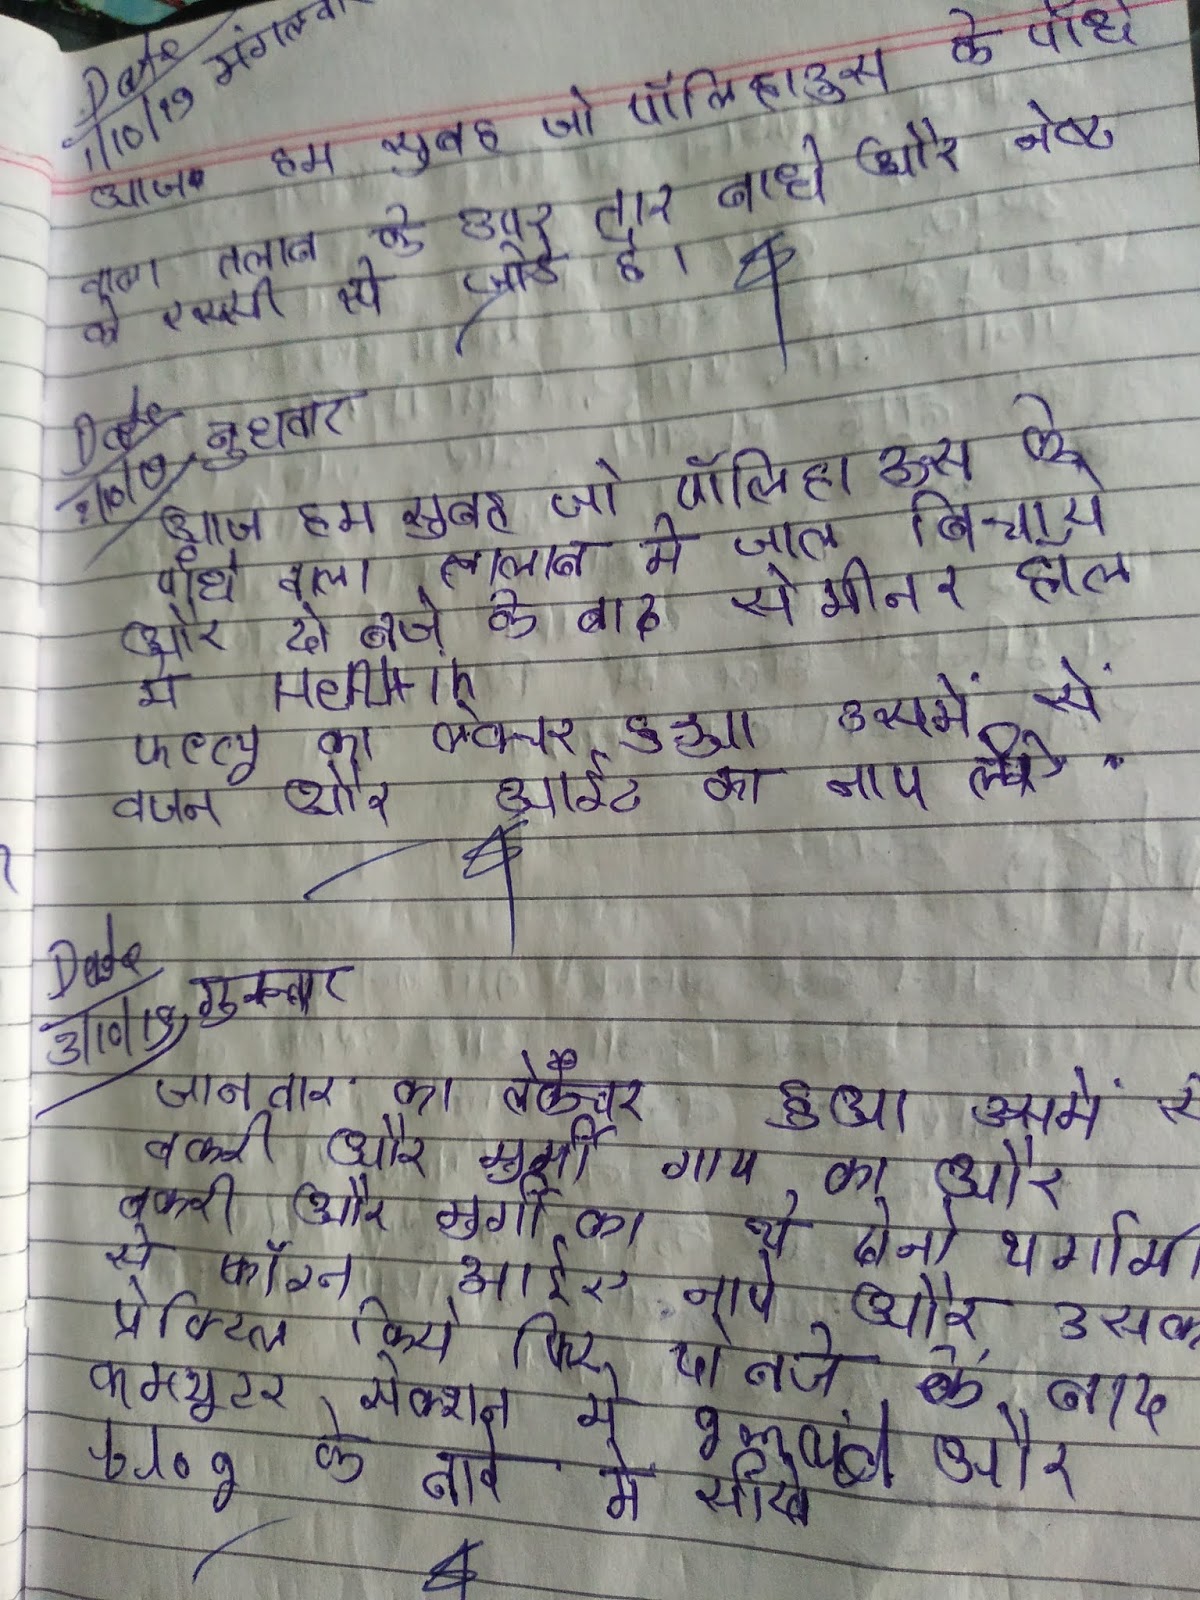 Date
1/10/19 मंगलवार
आज हम सुबह जो पॉलिहाउस के पौधे
वाला तलाब के उपर तार बाधे और नेट
को रस्सी से जोडे है।
Date
2/10/19, बुधवार
आज हम सुबह जो पॉलिहाऊस के
पौधे वाला तालाब मे जाल बिछाये
और दो बजे के बाद सेमीनर हॉल
मे
का लेक्चर हुआ उसमें से
वजन और आईट का नाप लिये
Date
3/10/19, गुरुवार
जानवार का लेक्चर हुआ उसमें से
बकरी और मुर्गी गाय का और
बकरी और मुर्गी का ये दोनो थर्मामी
से फॉरन आईट नापे और उसक
प्रेक्टिल किये फिर दो बजे के बाद
कमप्युटर सेक्शन मे gmail और
blog के बारे मे सीखे